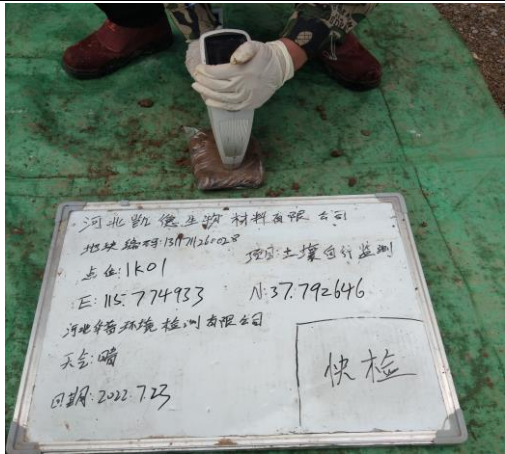 河北凯德生物材料有限公司
地块编码:1311711260028
项目:土壤自行监测
点位:1K01
E:115.774933
N:37.792646
河北华普环境检测有限公司
天气:晴
日期:2022.7.23
快检